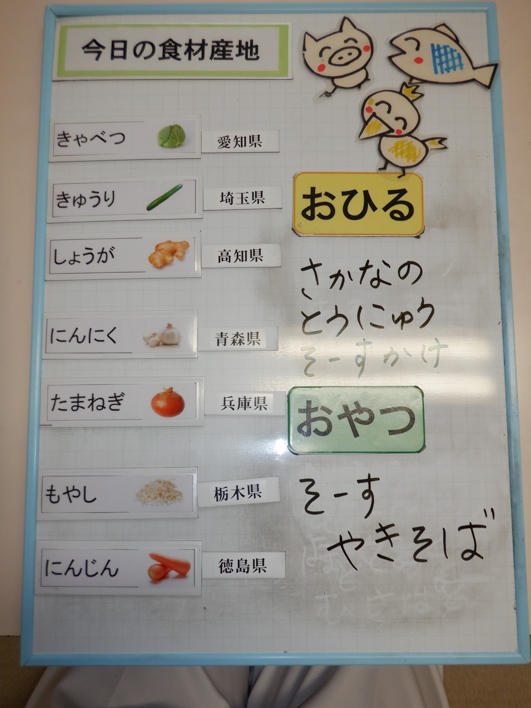 今日の食材産地
きゃべつ 愛知県
きゅうり 埼玉県
しょうが 高知県
にんにく 青森県
たまねぎ 兵庫県
もやし 栃木県
にんじん 徳島県
おひる
さかなの
とうにゅう
そーすかけ
おやつ
そーす
やきそば